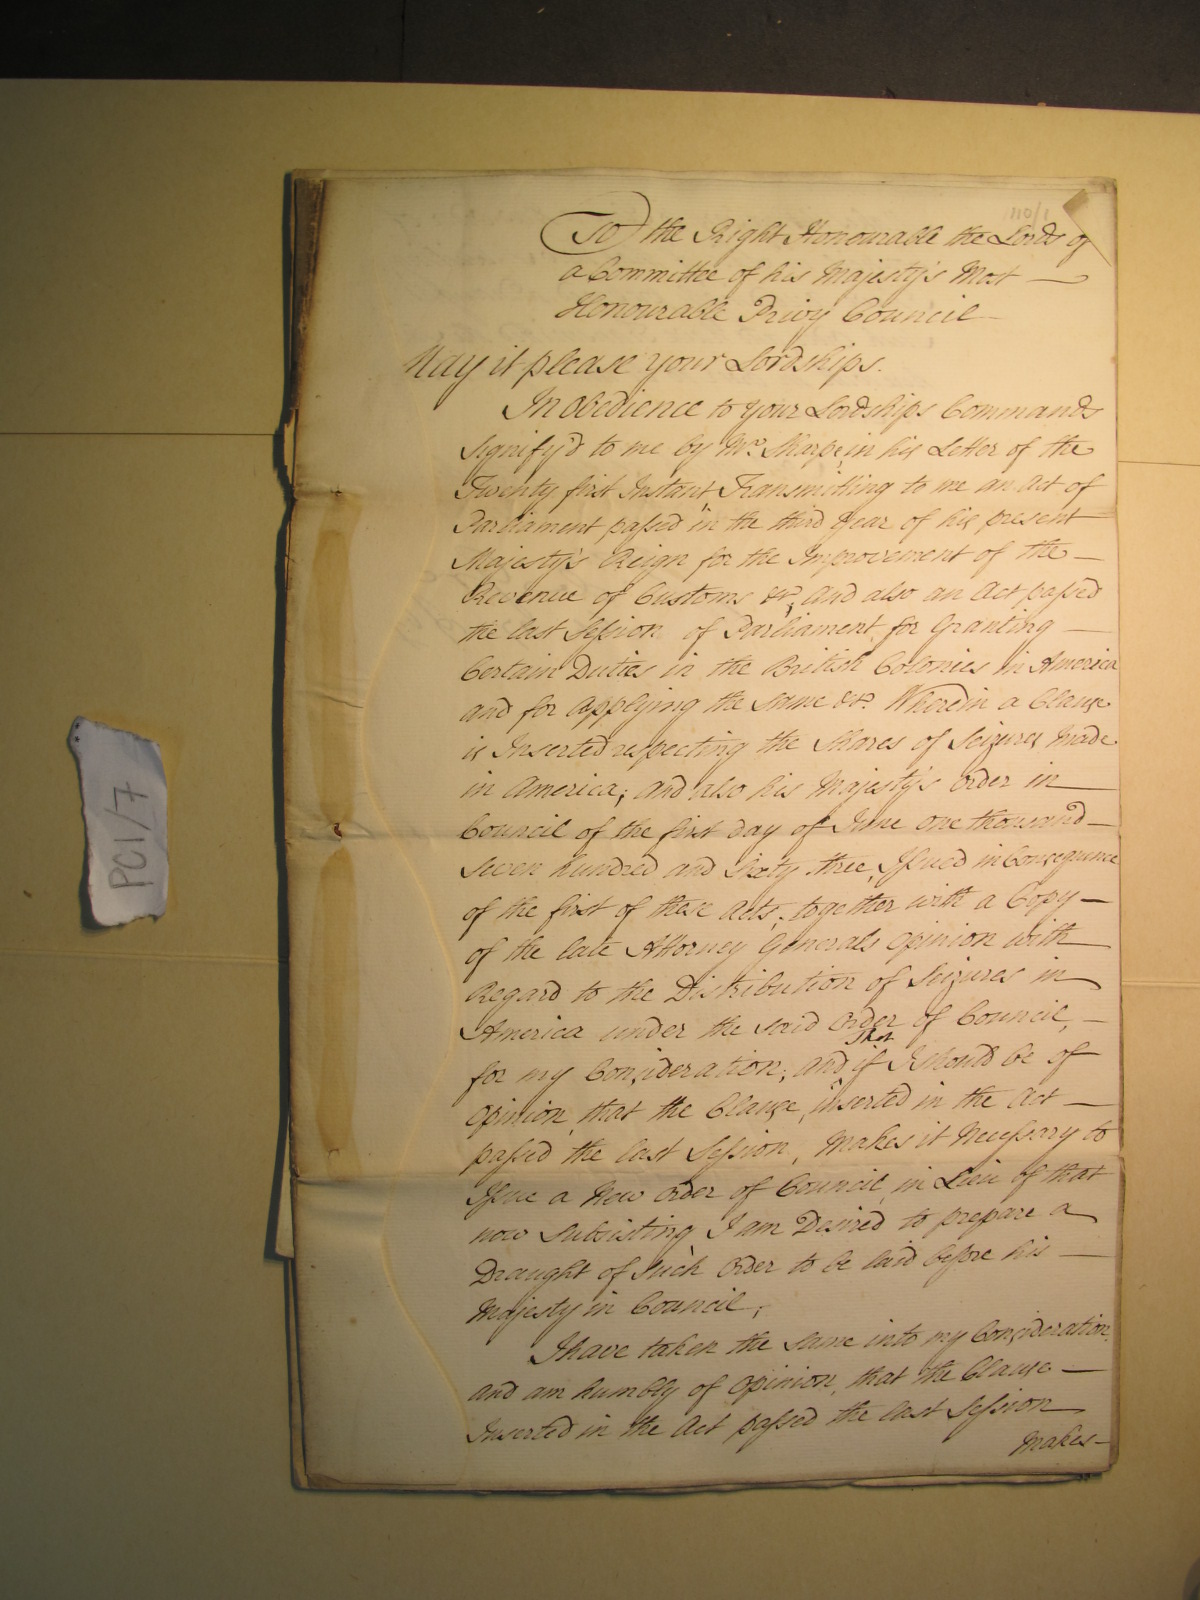 110/1
To the Right Honourable the Lords of
a Committee of his Majesty's Most
Honourable Privy Council
May it please your Lordships.
In obedience to your Lordships Commands
signify'd to me by Mr. Sharpe, in his Letter of the
Twenty first Instant, Transmitting to me an Act of
Parliament passed in the third Year of his present
Majesty's Reign for the Improvement of the
Revenue of Customs &c., and also an Act passed
the last Session of Parliament for Granting
Certain Duties in the British Colonies in America
and for applying the same &c. Wherein a Clause
is Inserted respecting the Shares of Seizures Made
in America; and also his Majesty's Order in
Council of the first day of June one thousand
seven hundred and Sixty three, Issued in Consequence
of the first of these Acts, together with a Copy
of the late Attorney Generals Opinion with
Regard to the Distribution of Seizures in
America under the said Order of Council,
for my Consideration; and That if I should be of
Opinion, that the Clause, inserted in the Act
passed the last Session, Makes it Necessary to
Issue a New Order of Council, in Lieu of that
now Subsisting, I am Desired to prepare a
Draught of Such Order to be laid before his
Majesty in Council;
I have taken the same into my Consideration,
and am humbly of Opinion, that the Clause
Inserted in the Act passed the last Session
Makes
PC1/7